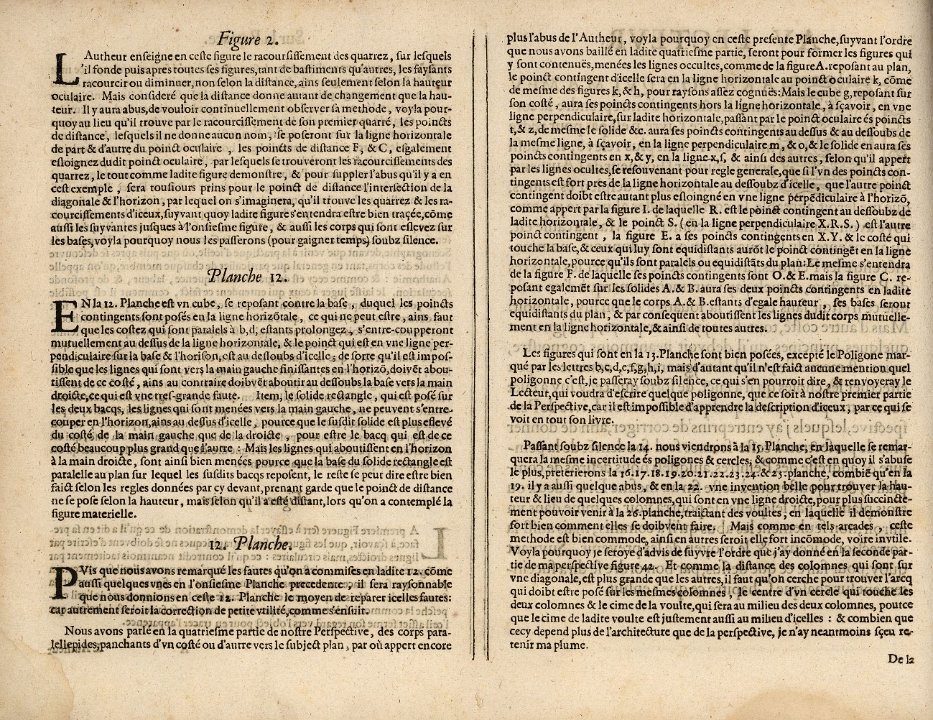 Figure 2.
LAutheur enseigne en ceste figure le racourcissement des quarrez, sur lesquels
il fonde puis apres toutes ses figures, tant de bastiments qu'autres, les faysants
racourcir ou diminuer, non selon la distance, ains seulement selon la hauteur
oculaire. Mais consideré que la distance donne autant de changement que la hau-
teur. Il y aura abus, de vouloir continuellement observer sa methode, voyla pour-
quoy au lieu qu'il trouve par le racourcissement de son premier quarré, les poincts
de distance, lesquels il ne donne aucun nom, se poseront sur la ligne horizontale
de part & d'autre du poinct oculaire, les poincts de distance F, & C, esgalement
esloignez dudit poinct oculaire, par lesquels se trouveront les racourcissements des
quarrez, le tout comme ladite figure demonstre, & pour suppler l'abus qu'il y a en
cest exemple, sera tousiours prins pour le poinct de distance l'intersection de la
diagonale & l'horizon, par lequel on s'imaginera, qu'il trouve les quarrez & les ra-
courcissements d'iceux, suyvant quoy ladite figure s'entendra estre bien traçée, cõme
aussi les suyvantes jusques à l'onsiesme figure, & aussi les corps qui sont eslevez sur
les bases, voyla pourquoy nous les passerons (pour gaigner temps) soubz silence.
Planche 12.
EN la 12. Planche est vn cube, se reposant contre la base, duquel les poincts
contingents sont posés en la ligne horizõtale, ce qui ne peut estre, ains faut
que les costez qui sont paralels à b,d, estants prolongez, s'entre-couperont
mutuellement au dessus de la ligne horizontale, & le poinct qui est en vne ligne per-
pendiculaire sur la base & l'horison, est au dessoubs d'icelle; de sorte qu'il est impos-
sible que les lignes qui sont vers la main gauche finissantes en l'horizõ, doivēt abou-
tissent de ce costé, ains au contraire doibvēt aboutir au dessoubs la base vers la main
droicte, ce qui est vne tres-grande faute. Item, le solide rectangle, qui est posé sur
les deux bacqs, les lignes qui sont menées vers la main gauche, ne peuvent s'entre-
couper en l'horizon, ains au dessus d'icelle, pource que le susdit solide est plus eslevé
du costé de la main gauche que de la droicte, pour estre le bacq qui est de ce
costé beaucoup plus grand que l'autre: Mais les lignes qui aboutissent en l'horizon
à la main droicte, sont ainsi bien menées pource que la base du solide rectangle est
paralelle au plan sur lequel les susdits bacqs reposent, le reste se peut dire estre bien
faict selon les regles données par cy devant, prenant garde que le poinct de distance
ne se pose selon la hauteur, mais selon qu'il a esté distant, lors qu'on a contemplé la
figure materielle.
12. Planche.
PVis que nous avons remarqué les fautes qu'on a commises en ladite 12. cõme
aussi quelques vnes en l'onsiesme Planche precedente, il sera raysonnable
que nous donnions en ceste 12. Planche le moyen de reparer icelles fautes:
car autrement seroit la correction de petite vtilité, comme s'ensuit.
Nous avons parlé en la quatriesme partie de nostre Perspective, des corps para-
lellepides, panchants d'vn costé ou d'autre vers le subject plan, par où appert encore
plus l'abus de l'Autheur, voyla pourquoy en ceste presente Planche, suyvant l'ordre
que nous avons baillé en ladite quatriesme partie, seront pour former les figures qui
y sont contenuës, menées les lignes occultes, comme de la figure A. reposant au plan,
le poinct contingent d'icelle sera en la ligne horizontale au poinct oculaire k, cõme
de mesme des figures k, & h, pour raysons assez cognuës: Mais le cube g, reposant sur
son costé, aura ses poincts contingents hors la ligne horizontale, à sçavoir, en vne
ligne perpendiculaire, sur ladite horizontale, passant par le poinct oculaire és poincts
t, & z, de mesme le solide &c. aura ses poincts contingents au dessus & au dessoubs de
la mesme ligne, à sçavoir, en la ligne perpendiculaire m, & o, & le solide en aura ses
poincts contingents en x, & y, en la ligne x, s, & ainsi des autres, selon qu'il appert
par les lignes ocultes, se resouvenant pour regle generale, que si l'vn des poincts con-
tingents est fort pres de la ligne horizontale au dessoubz d'icelle, que l'autre poinct
contingent doibt estre autant plus esloingné en vne ligne perpēdiculaire à l'horizõ,
comme appert par la figure I. de laquelle R. est le poinct contingent au dessoubz de
ladite horizontale, & le poinct S. (en la ligne perpendiculaire X.R.S.) est l'autre
poinct contingent, la figure E. a ses poincts contingents en X.Y. & le costé qui
touche la base, & ceux qui luy sont equidistants aurõt le poinct contingēt en la ligne
horizontale, pource qu'ils sont paralels ou equidistãts du plan: Le mesme s'entendra
de la figure F. de laquelle ses poincts contingents sont O. & E. mais la figure C. re-
posant egalemēt sur les solides A. & B. aura ses deux poincts contingents en ladite
horizontale, pource que le corps A. & B. estants d'egale hauteur, ses bases seront
equidistants du plan, & par consequent aboutissent les lignes dudit corps mutuelle-
ment en la ligne horizontale, & ainsi de toutes autres.
Les figures qui sont en la 13. Planche sont bien posées, excepté le Poligone mar-
qué par les lettres b,c,d,e,f,g,h,i, mais d'autant qu'il n'est faict aucune mention quel
poligonne c'est, je passeray soubz silence, ce qui s'en pourroit dire, & renvoyeray le
Lecteur, qui voudra d'escrire quelque poligone, que ce soit à nostre premier partie
de la Perspective, car il est impossible d'apprendre la description d'iceux, par ce qui se
voit en tout son livre.
Passant soubz silence la 14. nous viendrons à la 15. Planche, en laquelle se remar-
quera la mesme incertitude és poligones & cercles, & comme c'est en quoy il s'abuse
le plus, preterirons la 16. 17. 18. 19. 20. 21. 22. 23. 24. & 25. planche, combiē qu'en la
19. il y a aussi quelque abus, & en la 22. vne invention belle pour trouver la hau-
teur & lieu de quelques colomnes, qui sont en vne ligne droicte, pour plus succincte-
ment pouvoir venir à la 26. planche, traictant des voultes, en laquelle il demonstre
fort bien comment elles se doibvent faire. Mais comme en tels arcades, ceste
methode est bien commode, ainsi en autres seroit elle fort incõmode, voire invtile.
Voyla pourquoy je seroye d'advis de suyvre l'ordre que j'ay donné en la seconde par-
tie de ma perspective figure 42. Et comme la distance des colomnes qui sont sur
vne diagonale, est plus grande que les autres, il faut qu'on cerche pour trouver l'arcq
qui doibt estre posé sur les mesmes colomnes, le centre d'vn cercle qui touche les
deux colomnes & le cime de la voulte, qui sera au milieu des deux colomnes, pource
que le cime de ladite voulte est justement aussi au milieu d'icelles: & combien que
cecy depend plus de l'architecture que de la perspective, je n'ay neantmoins sçeu re-
tenir ma plume.
De la